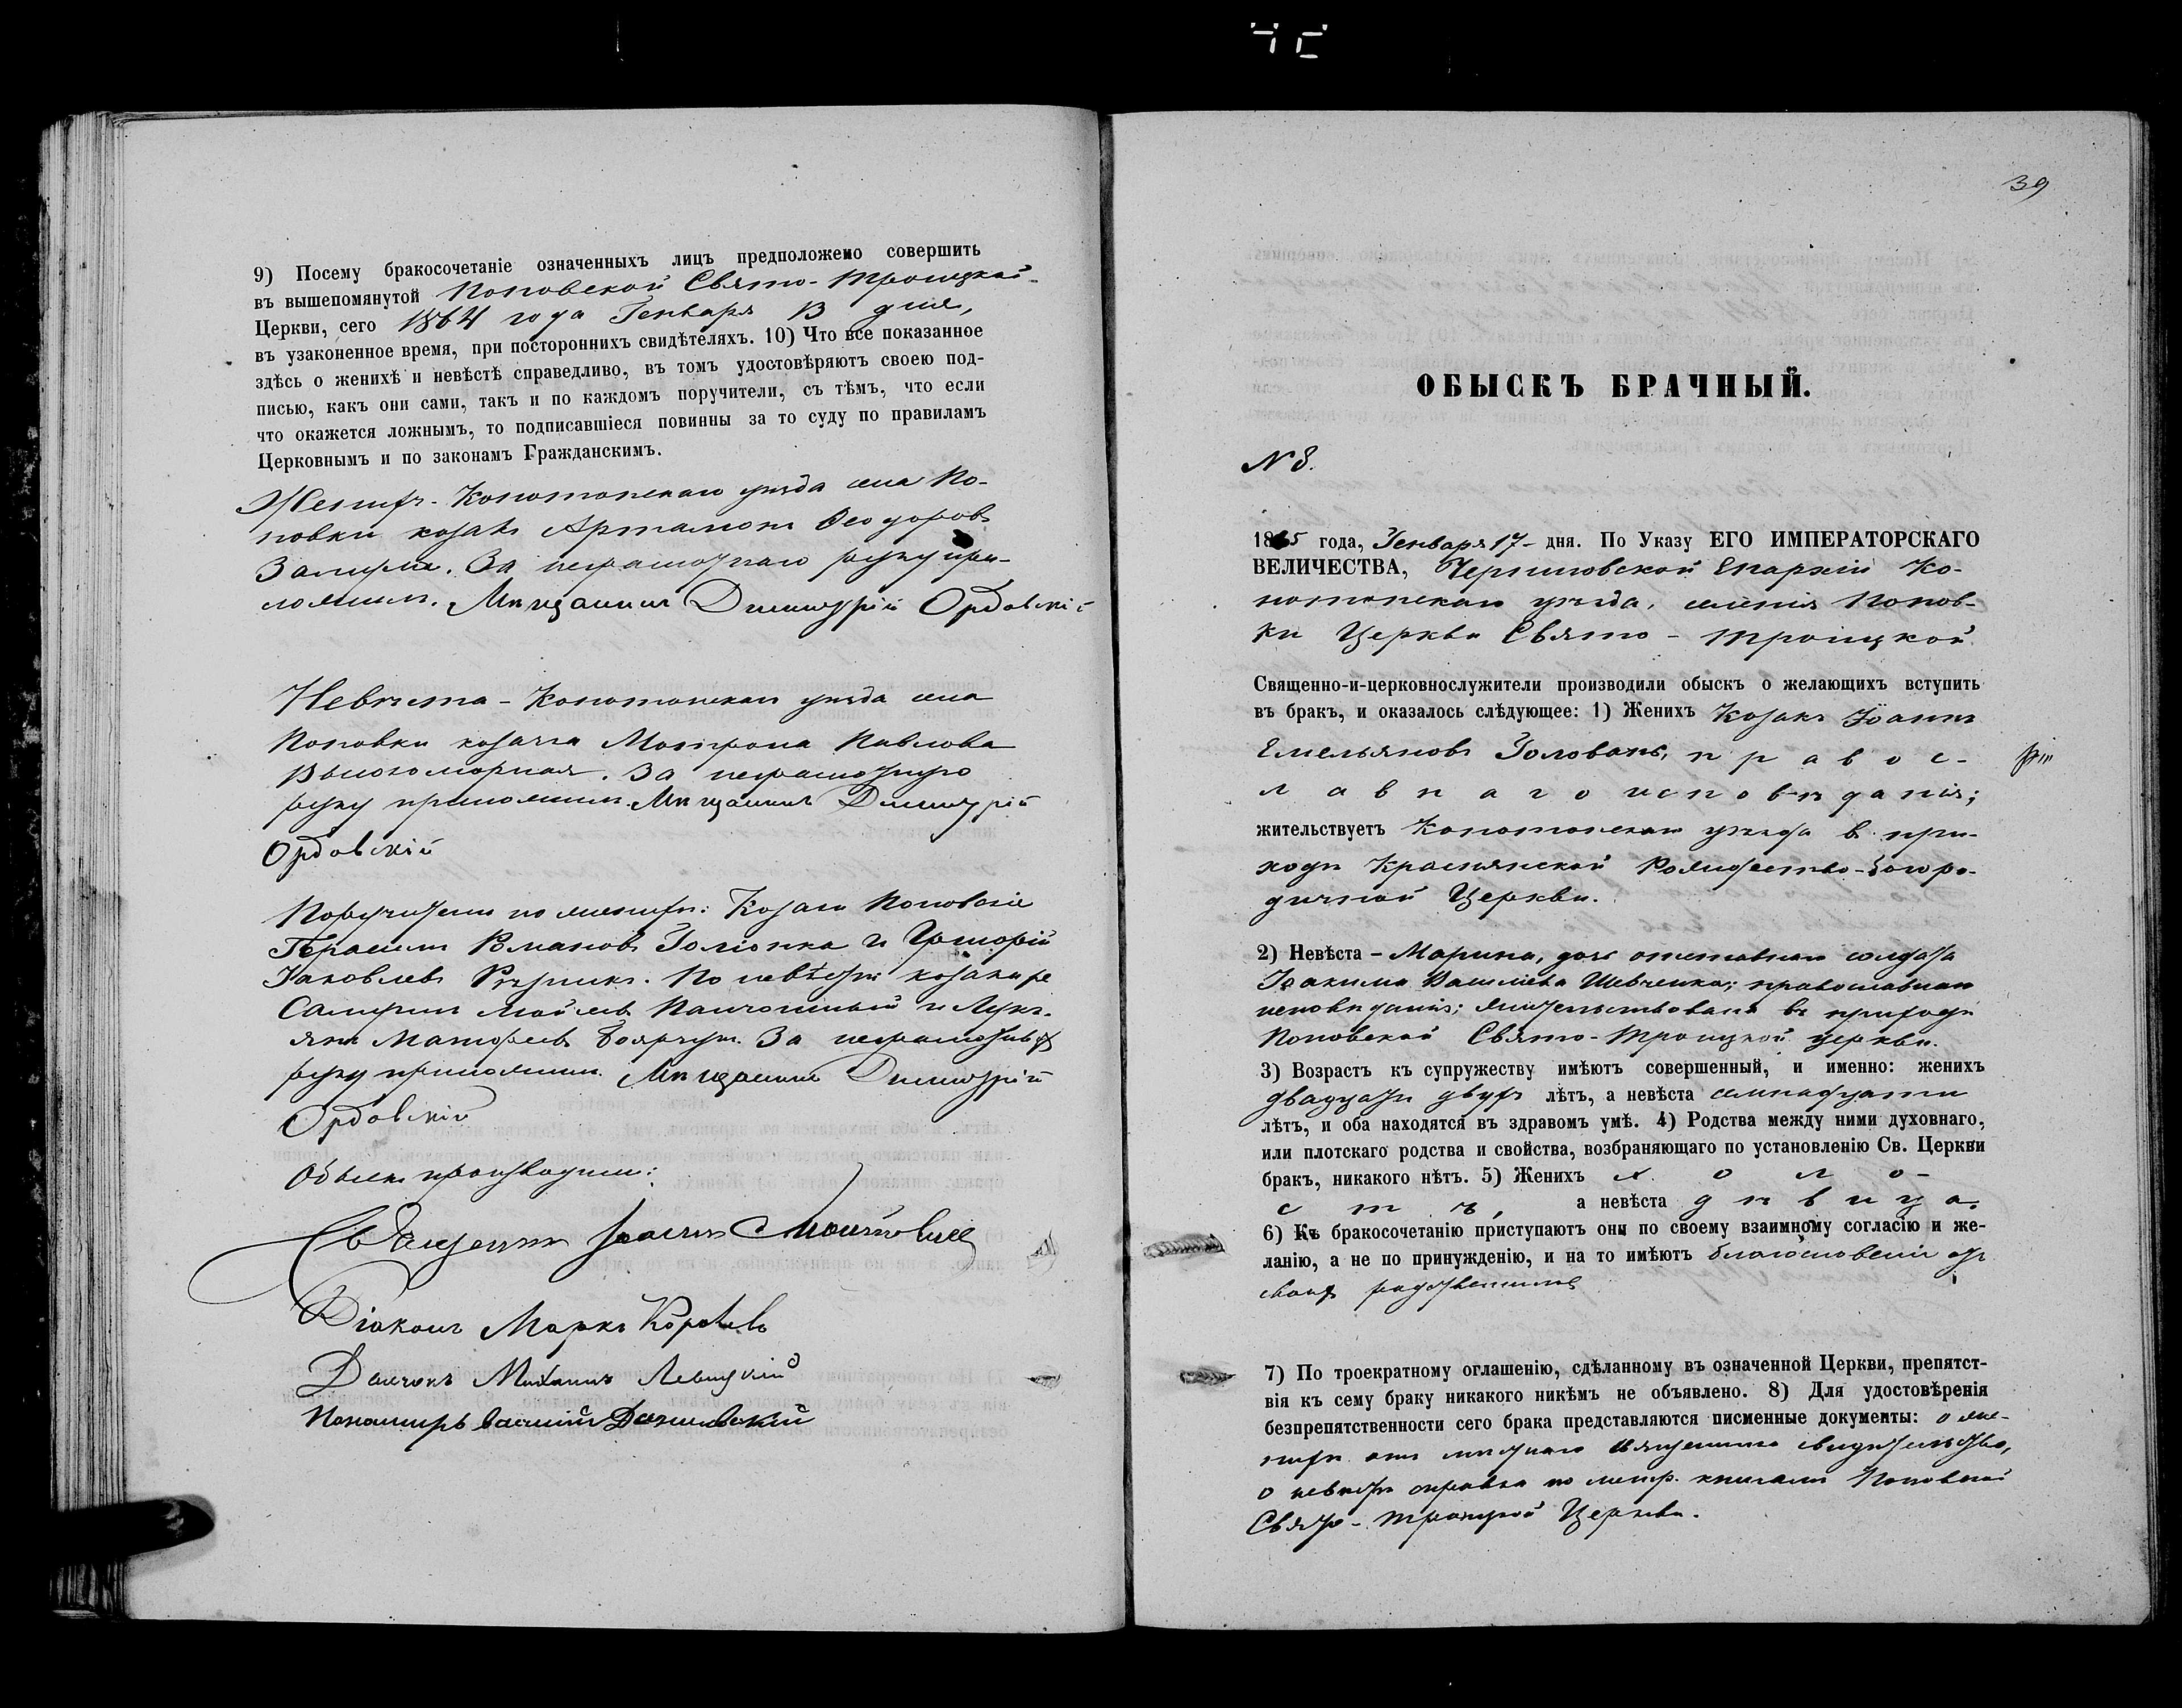 9) Посему бракосочетаніе означенныхъ лицъ предположено совершить
въ вышепомянутой Поповской Свято-Троицкой
Церкви, сего 1864 года Генваря 13 дня,
въ узаконенное время, при постороннихъ свидѣтеляхъ. 10) Что все показанное
здѣсь о женихѣ и невѣстѣ справедливо, въ томъ удостовѣряютъ своею под-
писью, какъ они сами, такъ и по каждомъ поручители, съ тѣмъ, что если
что окажется ложнымъ, то подписавшіеся повинны за то суду по правиламъ
Церковнымъ и по законамъ Гражданскимъ.
Женихъ - Конотопскаго уѣзда села По-
повки козакъ Артамонъ Ѳеодоровъ
За неграмотнаго руку при-
ложилъ. Мѣщанинъ Димитрій Ордовскій
Невѣста - Конотопскаго уѣзда села
Поповки козачка Мотрона Павлова
За неграмотную
руку приложилъ Мѣщанинъ Димитрій
Ордовскій
Поручители по женихѣ: Козаки Поповскіе
Герасимъ Романовъ и Григорій
Яковлевъ По невѣстѣ козаки
и Лукь-
янъ За неграмотныхъ
руку приложилъ Мѣщанинъ Димитрій
Ордовскій
Обыскъ производили:
Священникъ Іоаннъ
Діаконъ Маркъ
Дьячекъ Михаилъ Левицкій
Пономарь Василій
39
ОБЫСКЪ БРАЧНЫЙ.
N 8.
1865 года, Генваря 17- дня. По Указу ЕГО ИМПЕРАТОРСКАГО
ВЕЛИЧЕСТВА, Черниговской Епархіи Ко-
нотопскаго уѣзда, селенія Попов-
ки Церкви Свято-Троицкой
Священно-и-церковнослужители производили обыскъ о желающихъ вступить
въ бракъ, и оказалось слѣдующее: 1) Женихъ Козакъ Іоаннъ
Емельяновъ Головань, правос-
лавнаго исповѣданія;
жительствуетъ Конотопскаго уѣзда въ при-
ходѣ Краснянской Рождество-Богоро-
дичной Церкви.
2) Невѣста - Марина, дочь отставнаго солдата
Іоакима Васильева Шевченка; православнаго
исповѣданія; жительствовала въ приходѣ
Поповской Свято-Троицкой церкви.
3) Возрастъ къ супружеству имѣютъ совершенный, и именно: женихъ
двадцати двухъ лѣтъ, а невѣста семнадцати
лѣтъ, и оба находятся въ здравомъ умѣ. 4) Родства между ними духовнаго,
или плотскаго родства и свойства, возбраняющаго по установленію Св. Церкви
бракъ, никакого нѣтъ. 5) Женихъ холо-
стъ, а невѣста дѣвица.
6) Къ бракосочетанію приступаютъ они по своему взаимному согласію и же-
ланію, а не по принужденію, и на то имѣютъ благословеніе отъ
своихъ родственниковъ
7) По троекратному оглашенію, сдѣланному въ означенной Церкви, препятст-
вія къ сему браку никакого никѣмъ не объявлено. 8) Для удостовѣренія
безпрепятственности сего брака представляются писменные документы: о же-
нихѣ отъ мѣстнаго священника свидѣтельство,
о невѣстѣ справка по метр. книгамъ Поповской
Свято-Троицкой Церкви.